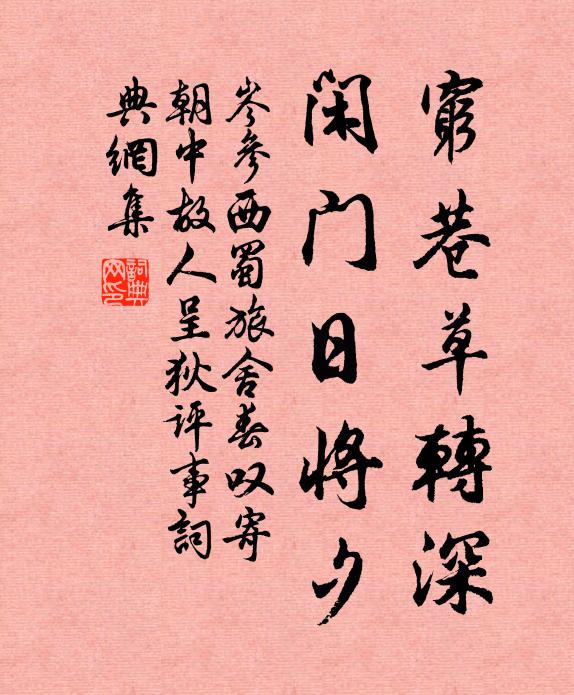 窮巷草轉深
閑門日將夕
岑參西蜀旅舍春叹寄
朝中故人呈狄评事詞
典網集
詞典网印